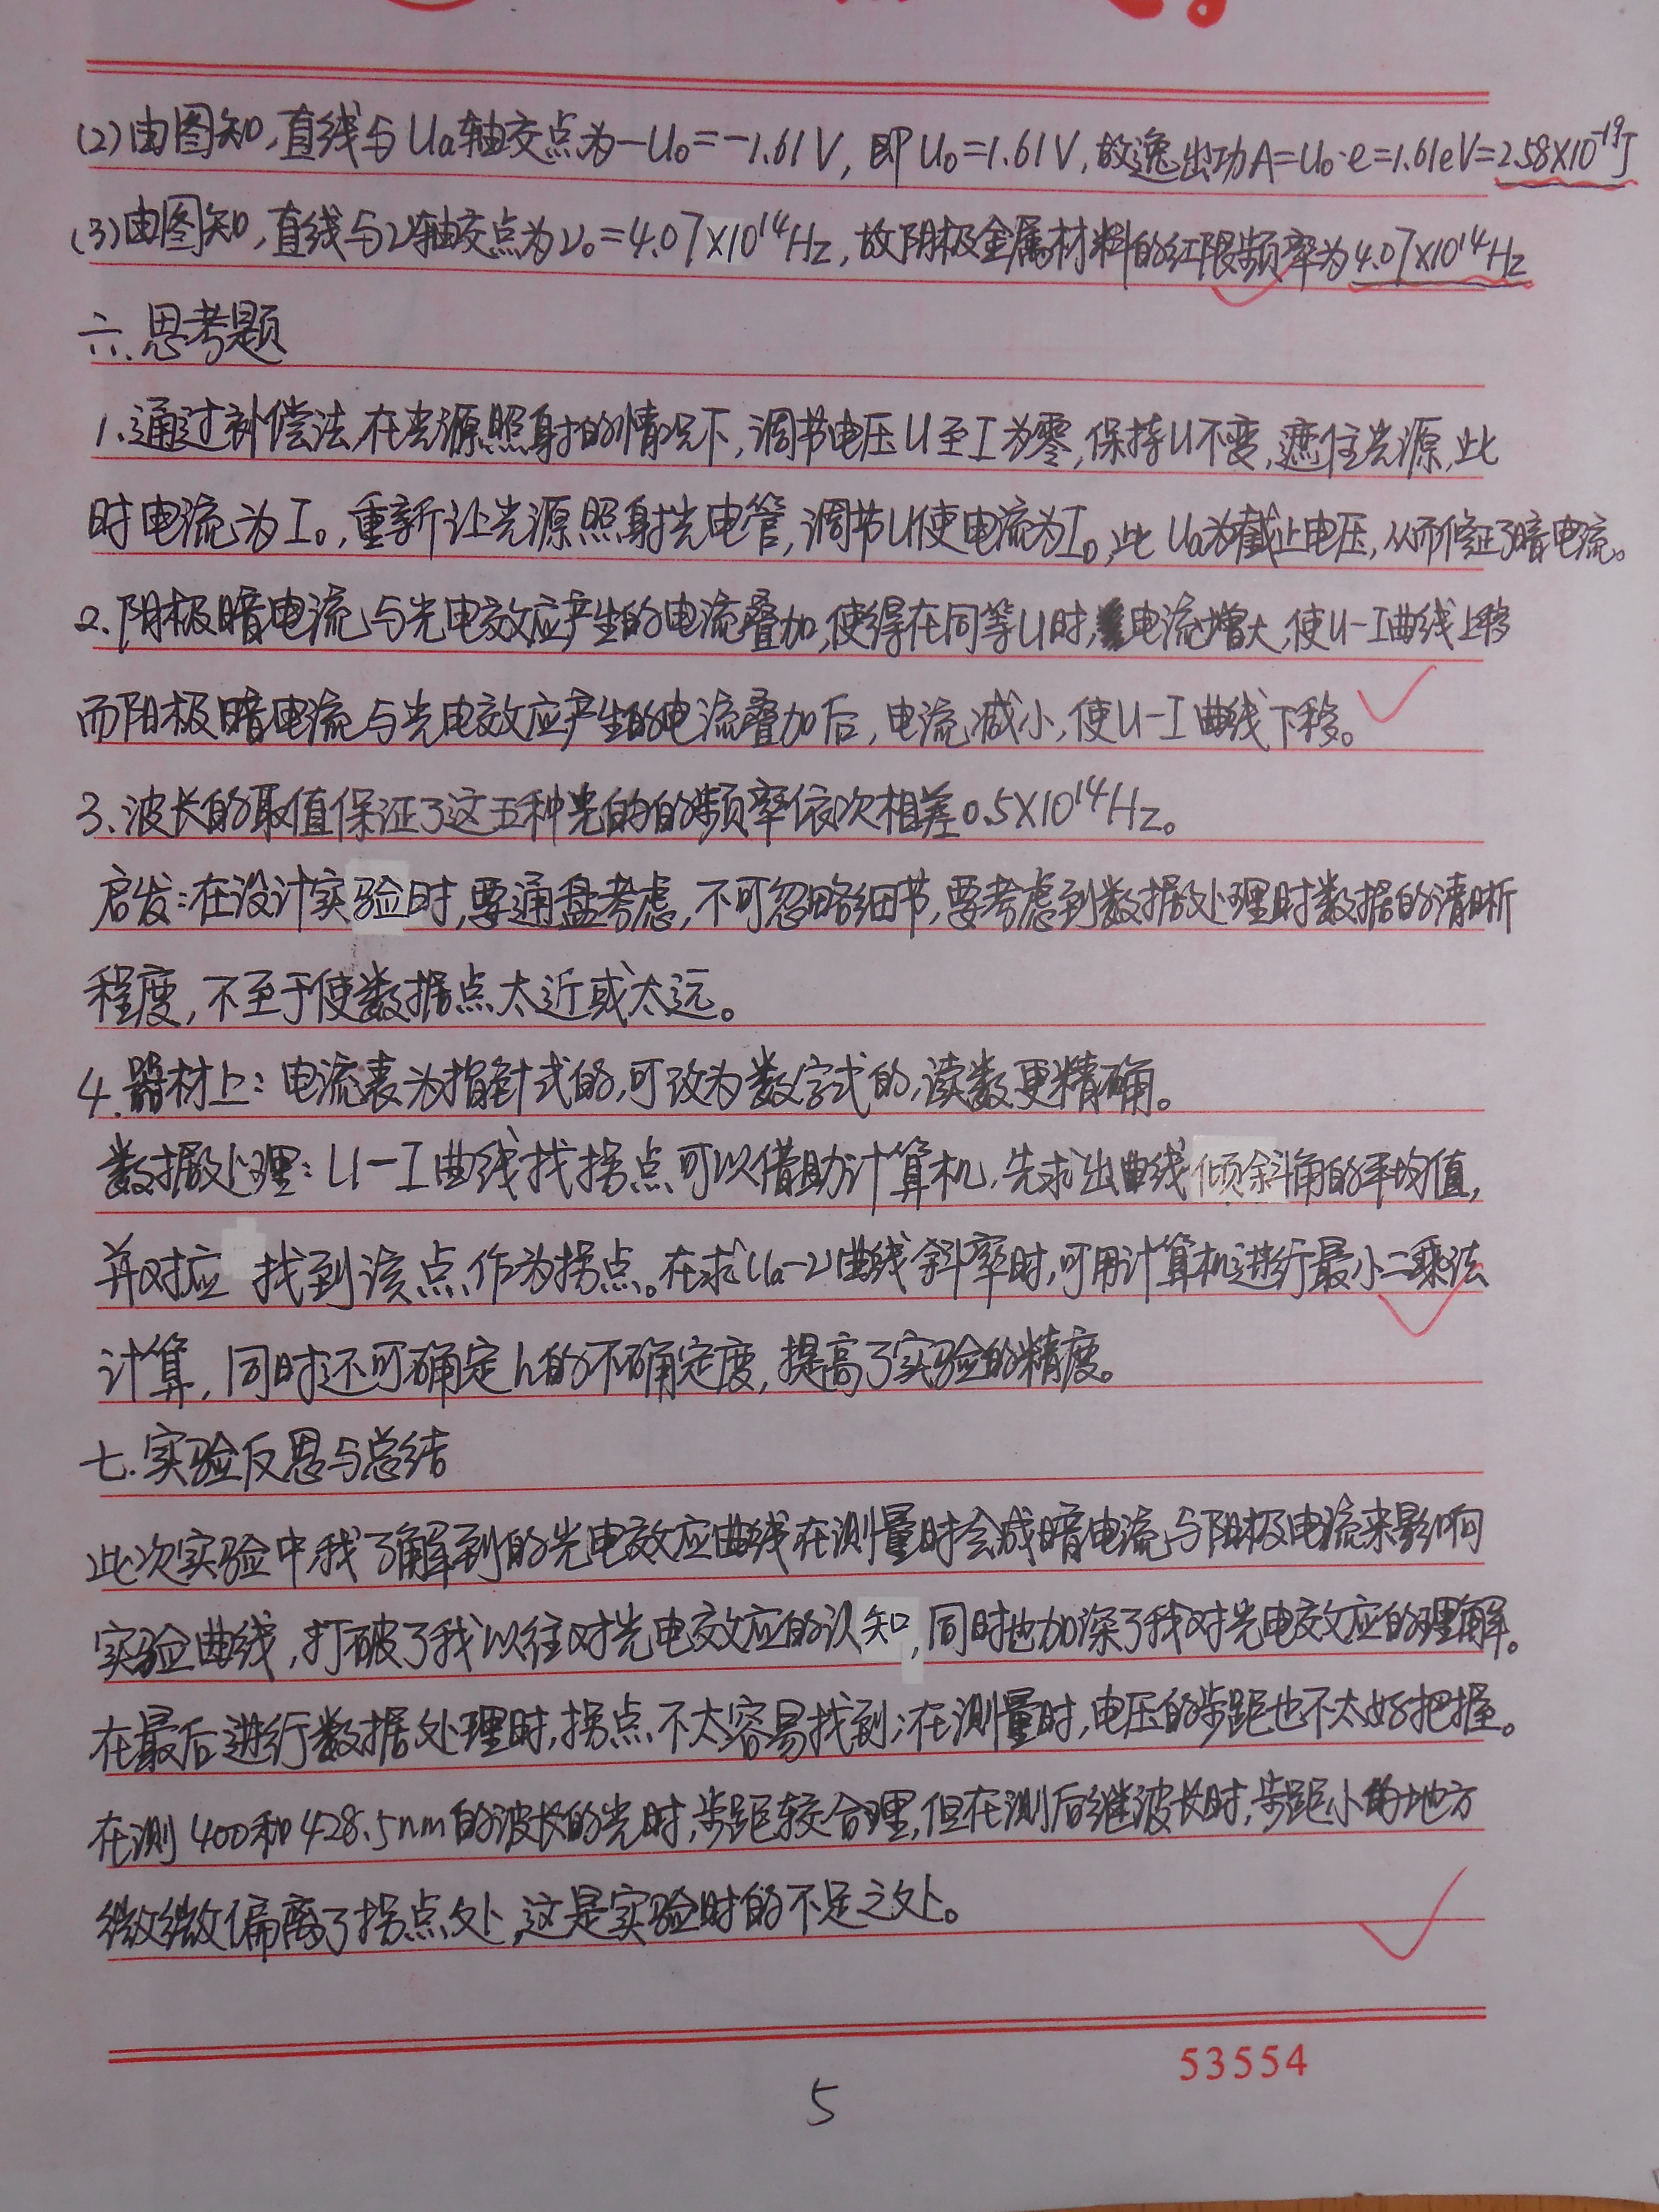 (2)由图知,直线与Ua轴交点为-U₀=-1.61V,即U₀=1.61V,故逸出功A=U₀·e=1.61eV=2.58×10⁻¹⁹J
(3)由图知,直线与ν轴交点为ν₀=4.07×10¹⁴Hz,故阴极金属材料的红限频率为4.07×10¹⁴Hz
六、思考题
1、通过补偿法,在光源照射的情况下,调节电压U至I为零,保持U不变,遮住光源,此
时电流为I₀,重新让光源照射光电管,调节U使电流为I₀,此Ua为截止电压,从而修正了暗电流。
2、阴极暗电流与光电效应产生的电流叠加,使得在同等U时,电流增大,使U-I曲线上移
而阳极暗电流与光电效应产生的电流叠加后,电流减小,使U-I曲线下移。
3、波长的取值保证了这五种光的的频率依次相差0.5×10¹⁴Hz。
启发:在设计实验时,要通盘考虑,不可忽略细节,要考虑到数据处理时数据的清晰
程度,不至于使数据点太近或太远。
4.器材上:电流表为指针式的,可改为数字式的,读数更精确。
数据处理:U-I曲线找拐点可以借助计算机,先求出曲线倾斜角的平均值,
并对应 找到该点作为拐点。在求Ua-ν曲线斜率时,可用计算机进行最小二乘法
计算,同时还可确定h的不确定度,提高了实验的精度。
七.实验反思与总结
此次实验中我了解到的光电效应曲线在测量时会成暗电流与阳极电流来影响
实验曲线,打破了我以往对光电效应的认知,同时也加深了我对光电效应的理解。
在最后进行数据处理时,拐点不太容易找到;在测量时,电压的步距也不太好把握。
在测400和428.5nm的波长的光时,步距较合理,但在测后继波长时,步距小的地方
微微偏离了拐点处,这是实验时的不足之处。
53554
5